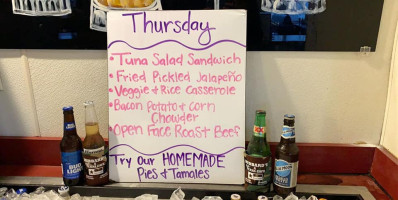 Thursday
• Tuna Salad Sandwich
• Fried Pickled Jalapeño
• Veggie & Rice Casserole
• Bacon Potato & Corn
Chowder
• Open Face Roast Beef
Try Our HOMEMADE
Pies & Tamales
BUD
LIGHT